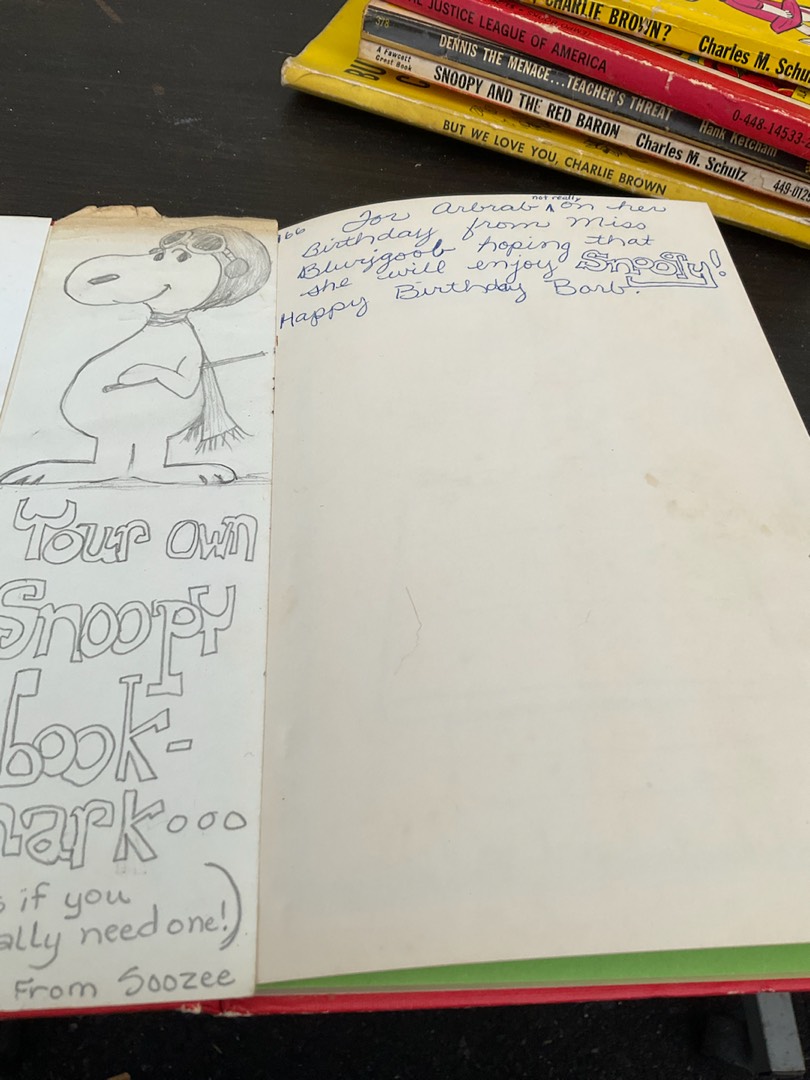 CHARLIE BROWN?
Charles M. Schul
JUSTICE LEAGUE OF AMERICA
0-448-14533-
DENNIS THE MENACE...TEACHER'S THREAT
Hank Ketcham
A Fawcett
Crest Book
SNOOPY AND THE RED BARON
Charles M. Schulz
449-0129
BUT WE LOVE YOU, CHARLIE BROWN
not really
For Arbrab ^ on her
Birthday from Miss
Blurjgoob hoping that
she will enjoy Snoopy!
Happy Birthday Barb.
Your own
Snoopy
book-
mark...
s if you
ally need one!)
From Soozee